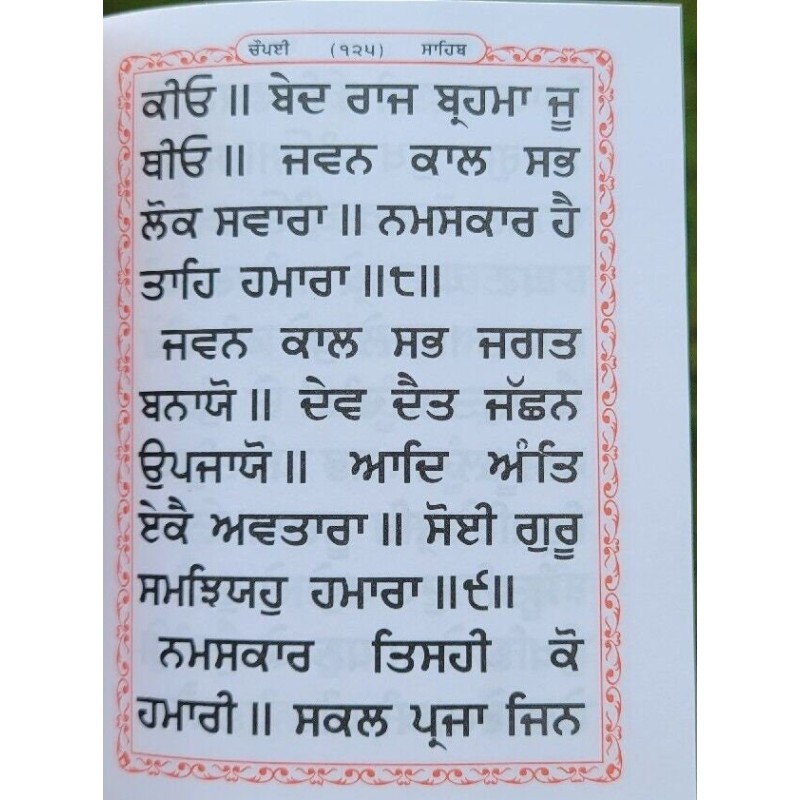 ਚੌਪਈ (੧੨੫) ਸਾਹਿਬ
ਕੀਓ ॥ ਬੇਦ ਰਾਜ ਬ੍ਰਹਮਾ ਜੂ
ਥੀਓ ॥ ਜਵਨ ਕਾਲ ਸਭ
ਲੋਕ ਸਵਾਰਾ ॥ ਨਮਸਕਾਰ ਹੈ
ਤਾਹਿ ਹਮਾਰਾ ॥੮॥
ਜਵਨ ਕਾਲ ਸਭ ਜਗਤ
ਬਨਾਯੋ ॥ ਦੇਵ ਦੈਤ ਜੱਛਨ
ਉਪਜਾਯੋ ॥ ਆਦਿ ਅੰਤਿ
ਏਕੈ ਅਵਤਾਰਾ ॥ ਸੋਈ ਗੁਰੂ
ਸਮਝਿਯਹੁ ਹਮਾਰਾ ॥੯॥
ਨਮਸਕਾਰ ਤਿਸਹੀ ਕੋ
ਹਮਾਰੀ ॥ ਸਕਲ ਪ੍ਰਜਾ ਜਿਨ